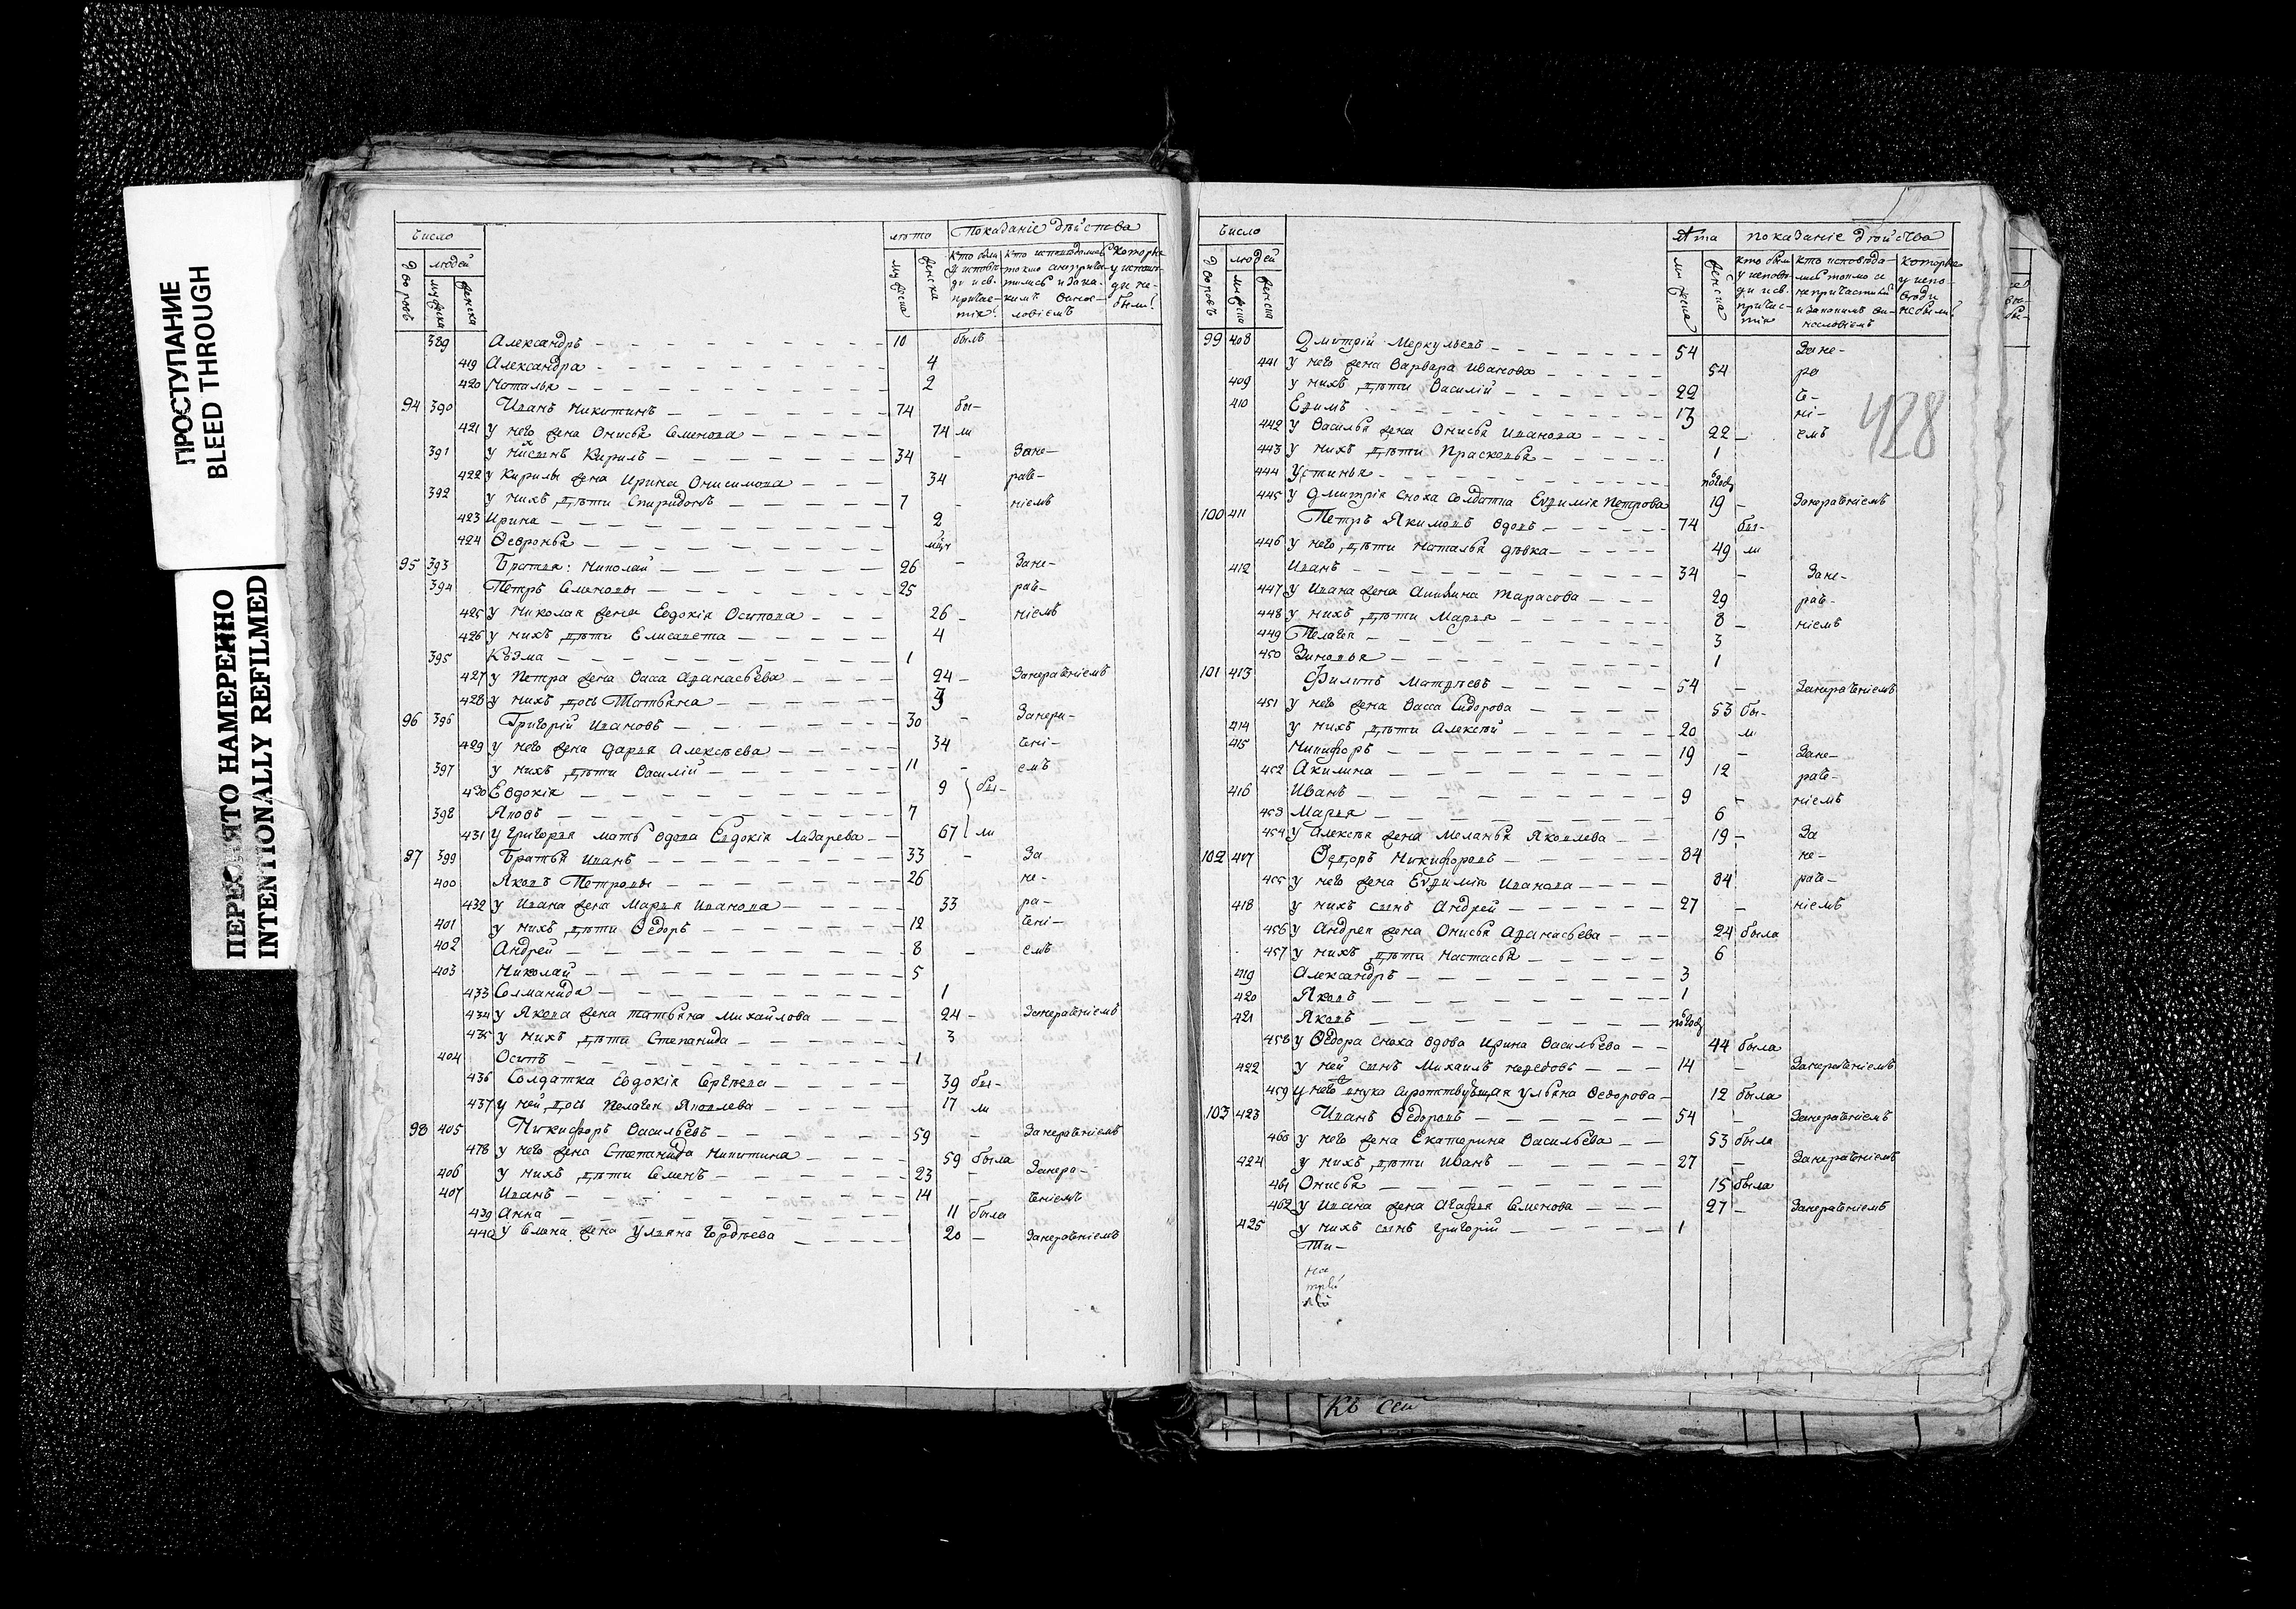 ПРОСТУПАНИЕ
BLEED THROUGH
ПЕРЕСНЯТО НАМЕРЕННО
INTENTIONALLY REFILMED
Число
лѣта Показаніе дѣйства
дворовъ людей мужска женска
мужска женска
389 Александръ 10 былъ
419 Александра 4
420 Наталья 2
94 390 Иванъ Никитинъ 74 бы-
421 У него жена Онисья Семенова 74 ли
391 у нихъ сынъ Кирилъ 34 - Зане-
422 у Кирилы жена Ирина Онисимова 34 раче-
392 у нихъ дѣти Спиридонъ 7 - ніемъ
423 Ирина 2
424 Февронья
95 393 Братья: Николай 26 - Зане-
394 Петръ Семеновы 25 рач-
425 у Николая жена Евдокія Осипова 26 - ніемъ
426 у нихъ дѣти Елисавета 4
395 Козма 1
427 у Петра жена Васса Афанасьева 24 - Занераченіемъ
428 у нихъ дочь Татьяна 3
96 396 Григорій Ивановъ 30 - Занера-
429 у него жена Дарья Алексѣева 34 чені-
397 у нихъ дѣти Василій 11 - емъ
430 Евдокія 9 бы-
398 Яковъ 7
431 у Григорья мать вдова Евдокія Лазарева 67 ли
97 399 Братья Иванъ 33 - За
400 Яковъ Петровы 26 не-
432 у Ивана жена Марья Иванова 33 ра-
401 у нихъ дѣти Федоръ 12 чені-
402 Андрей 8 - емъ
403 Николай 5
433 Соломанида 1
434 у Якова жена Татьяна Михайлова 24 - Занераченіемъ
435 у нихъ дѣти Степанида 3
404 Осипъ 1
436 Солдатка Евдокія Сергѣева 39 бы-
437 у ней дочь Пелагея Яковлева 17 ли
98 405 Никифоръ Васильевъ 59 - Занераченіемъ
478 у него жена Степанида Никитина 59 была
406 у нихъ дѣти Семенъ 23 - Занера-
407 Иванъ 14 ченіемъ
439 Анна 11 была
440 у Семена жена Ульяна Гордѣева 20 - Занераченіемъ
Число
Лѣта показаніе дѣйства
дворовъ людей мужска женска
мужска женска
428
99 408 Дмитрій Меркульевъ 54 Зане-
441 у него жена Варвара Иванова 54 ра
409 у нихъ дѣти Василій 22 че-
410 Ефимъ 13 ні-
442 у Василья жена Онисья Иванова 22 - емъ
443 у нихъ дѣти Прасковья 1
444 Устинья полгоду
445 у Дмитрія сноха солдатка Евфимія Петрова 19 - Занераченіемъ
100 411 Петръ Якимовъ вдовъ 74 бы-
446 у него дѣти Наталья дѣвка 49 ли
412 Иванъ 34 - Зане-
447 у Ивана жена Акилина Тарасова 29 рач-
448 у нихъ дѣти Марья 8 - ніемъ
449 Пелагея 3
450 Зиновья 1
101 413 Филипъ Матфеевъ 54 - Занераченіемъ
451 у него жена Васса Сидорова 53 бы-
414 у нихъ дѣти Алексѣй 20 ли
415 Никифоръ 19 - Зане-
452 Акилина 12 раче-
416 Иванъ 9 - ніемъ
453 Марья 6
454 у Алексѣя жена Меланья Яковлева 19 - За
102 417 Федоръ Никифоровъ 84 не-
455 у него жена Евфимія Иванова 84 раче-
418 у нихъ сынъ Андрей 27 - ніемъ
456 у Андрея жена Онисья Афанасьева 24 была
457 у нихъ дѣти Настасья 6
419 Александръ 3
420 Яковъ 1
421 Яковъ полгоду
458 у Федора сноха вдова Ирина Васильева 44 была
422 у ней сынъ Михаилъ 14 - Занераченіемъ
459 у него внука сиротствующая Ульяна Федорова 12 была
103 423 Иванъ Федоровъ 54 - Занераченіемъ
460 у него жена Екатерина Васильева 53 была
424 у нихъ дѣти Иванъ 27 - Занераченіемъ
461 Онисья 15 была
462 у Ивана жена Агафья Семенова 27 - Занераченіемъ
425 у нихъ сынъ Григорій 1
Къ сей